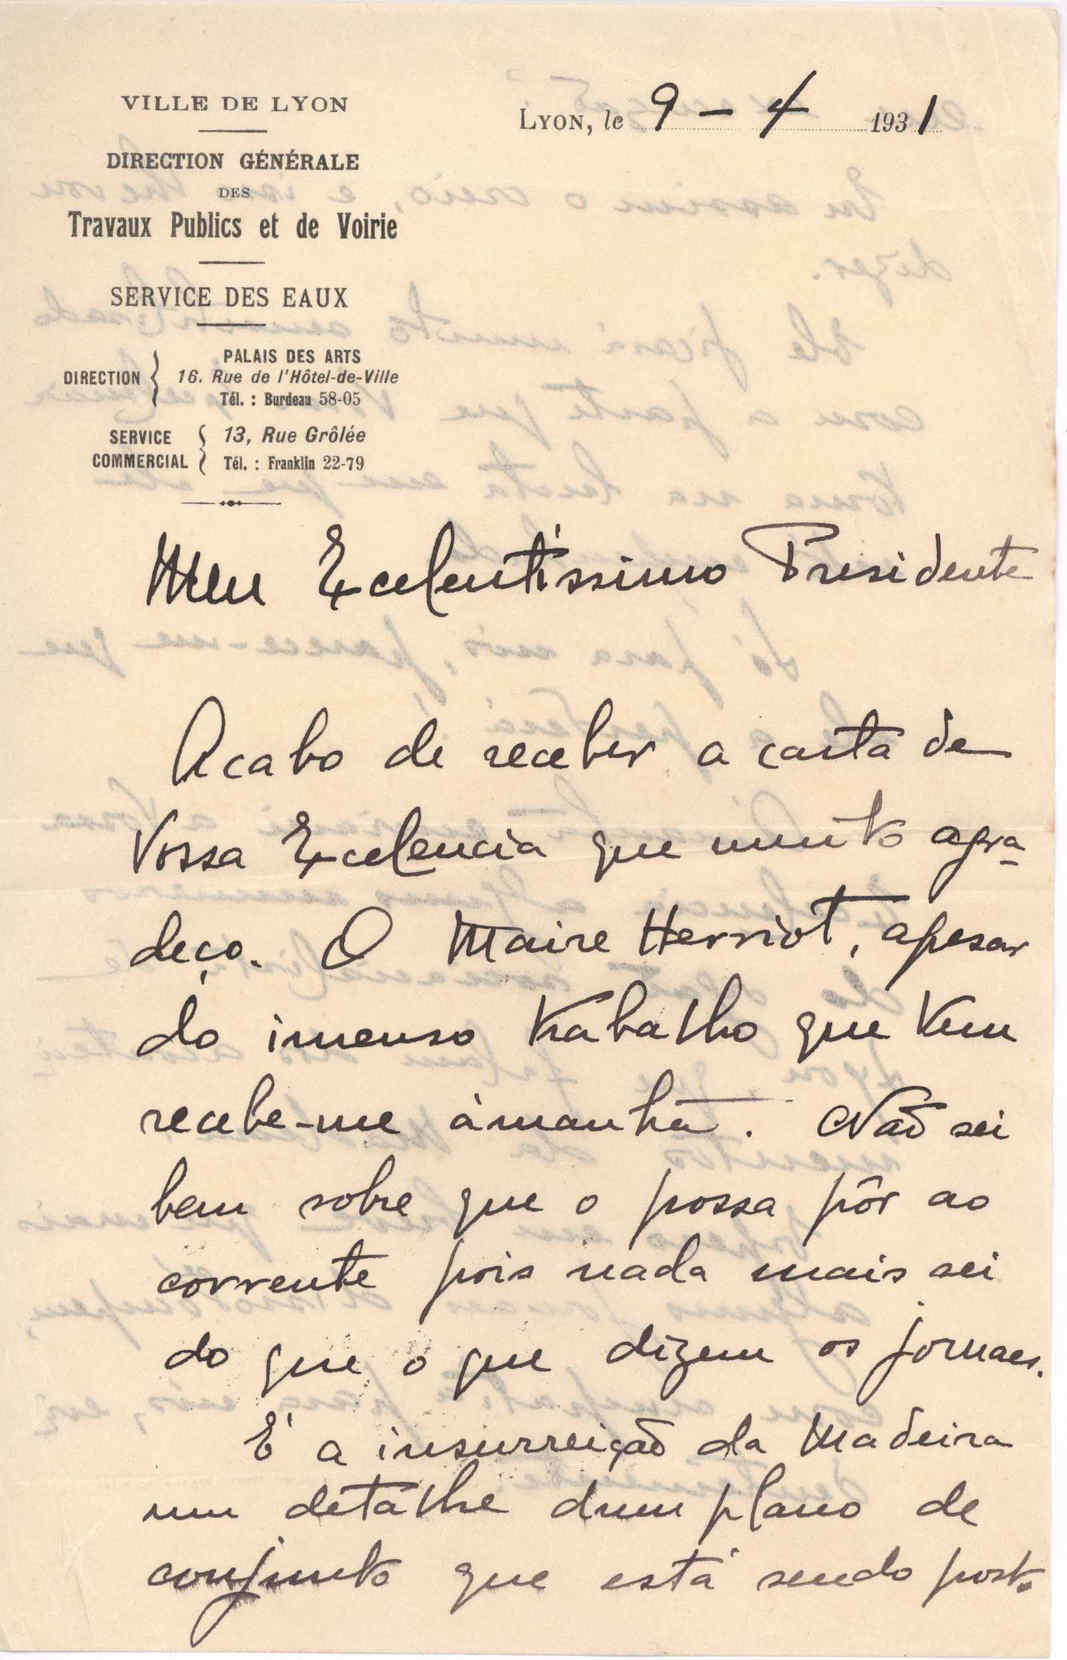 VILLE DE LYON
DIRECTION GÉNÉRALE
DES
Travaux Publics et de Voirie
SERVICE DES EAUX
DIRECTION { PALAIS DES ARTS
16. Rue de l'Hôtel-de-Ville
Tél. : Burdeau 58-05
SERVICE COMMERCIAL { 13, Rue Grôlée
Tél. : Franklin 22-79
LYON, le 9 - 4 1931
Meu Excelentíssimo Presidente
Acabo de receber a carta de
Vossa Excelencia que muito agra-
deço. O Maire Herriot, apesar
do imenso trabalho que tem
recebe-me àmanhã. Não sei
bem sobre que o possa pôr ao
corrente pois nada mais sei
do que o que dizem os jornaes.
É a insurreição da Madeira
um detalhe dum plano de
conjunto que está sendo posto